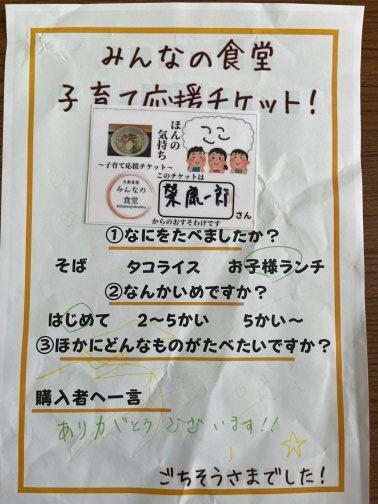 みんなの食堂
子育て応援チケット!
ほんの
気持ち
ここ
～子育て応援チケット～
このチケットは
みんなの
食堂
さん
からのおすそわけです
①なにをたべましたか?
そば タコライス お子様ランチ
②なんかいめですか?
はじめて 2～5かい 5かい～
③ほかにどんなものがたべたいですか?
購入者へ一言
ありがとうございます!!
ごちそうさまでした!